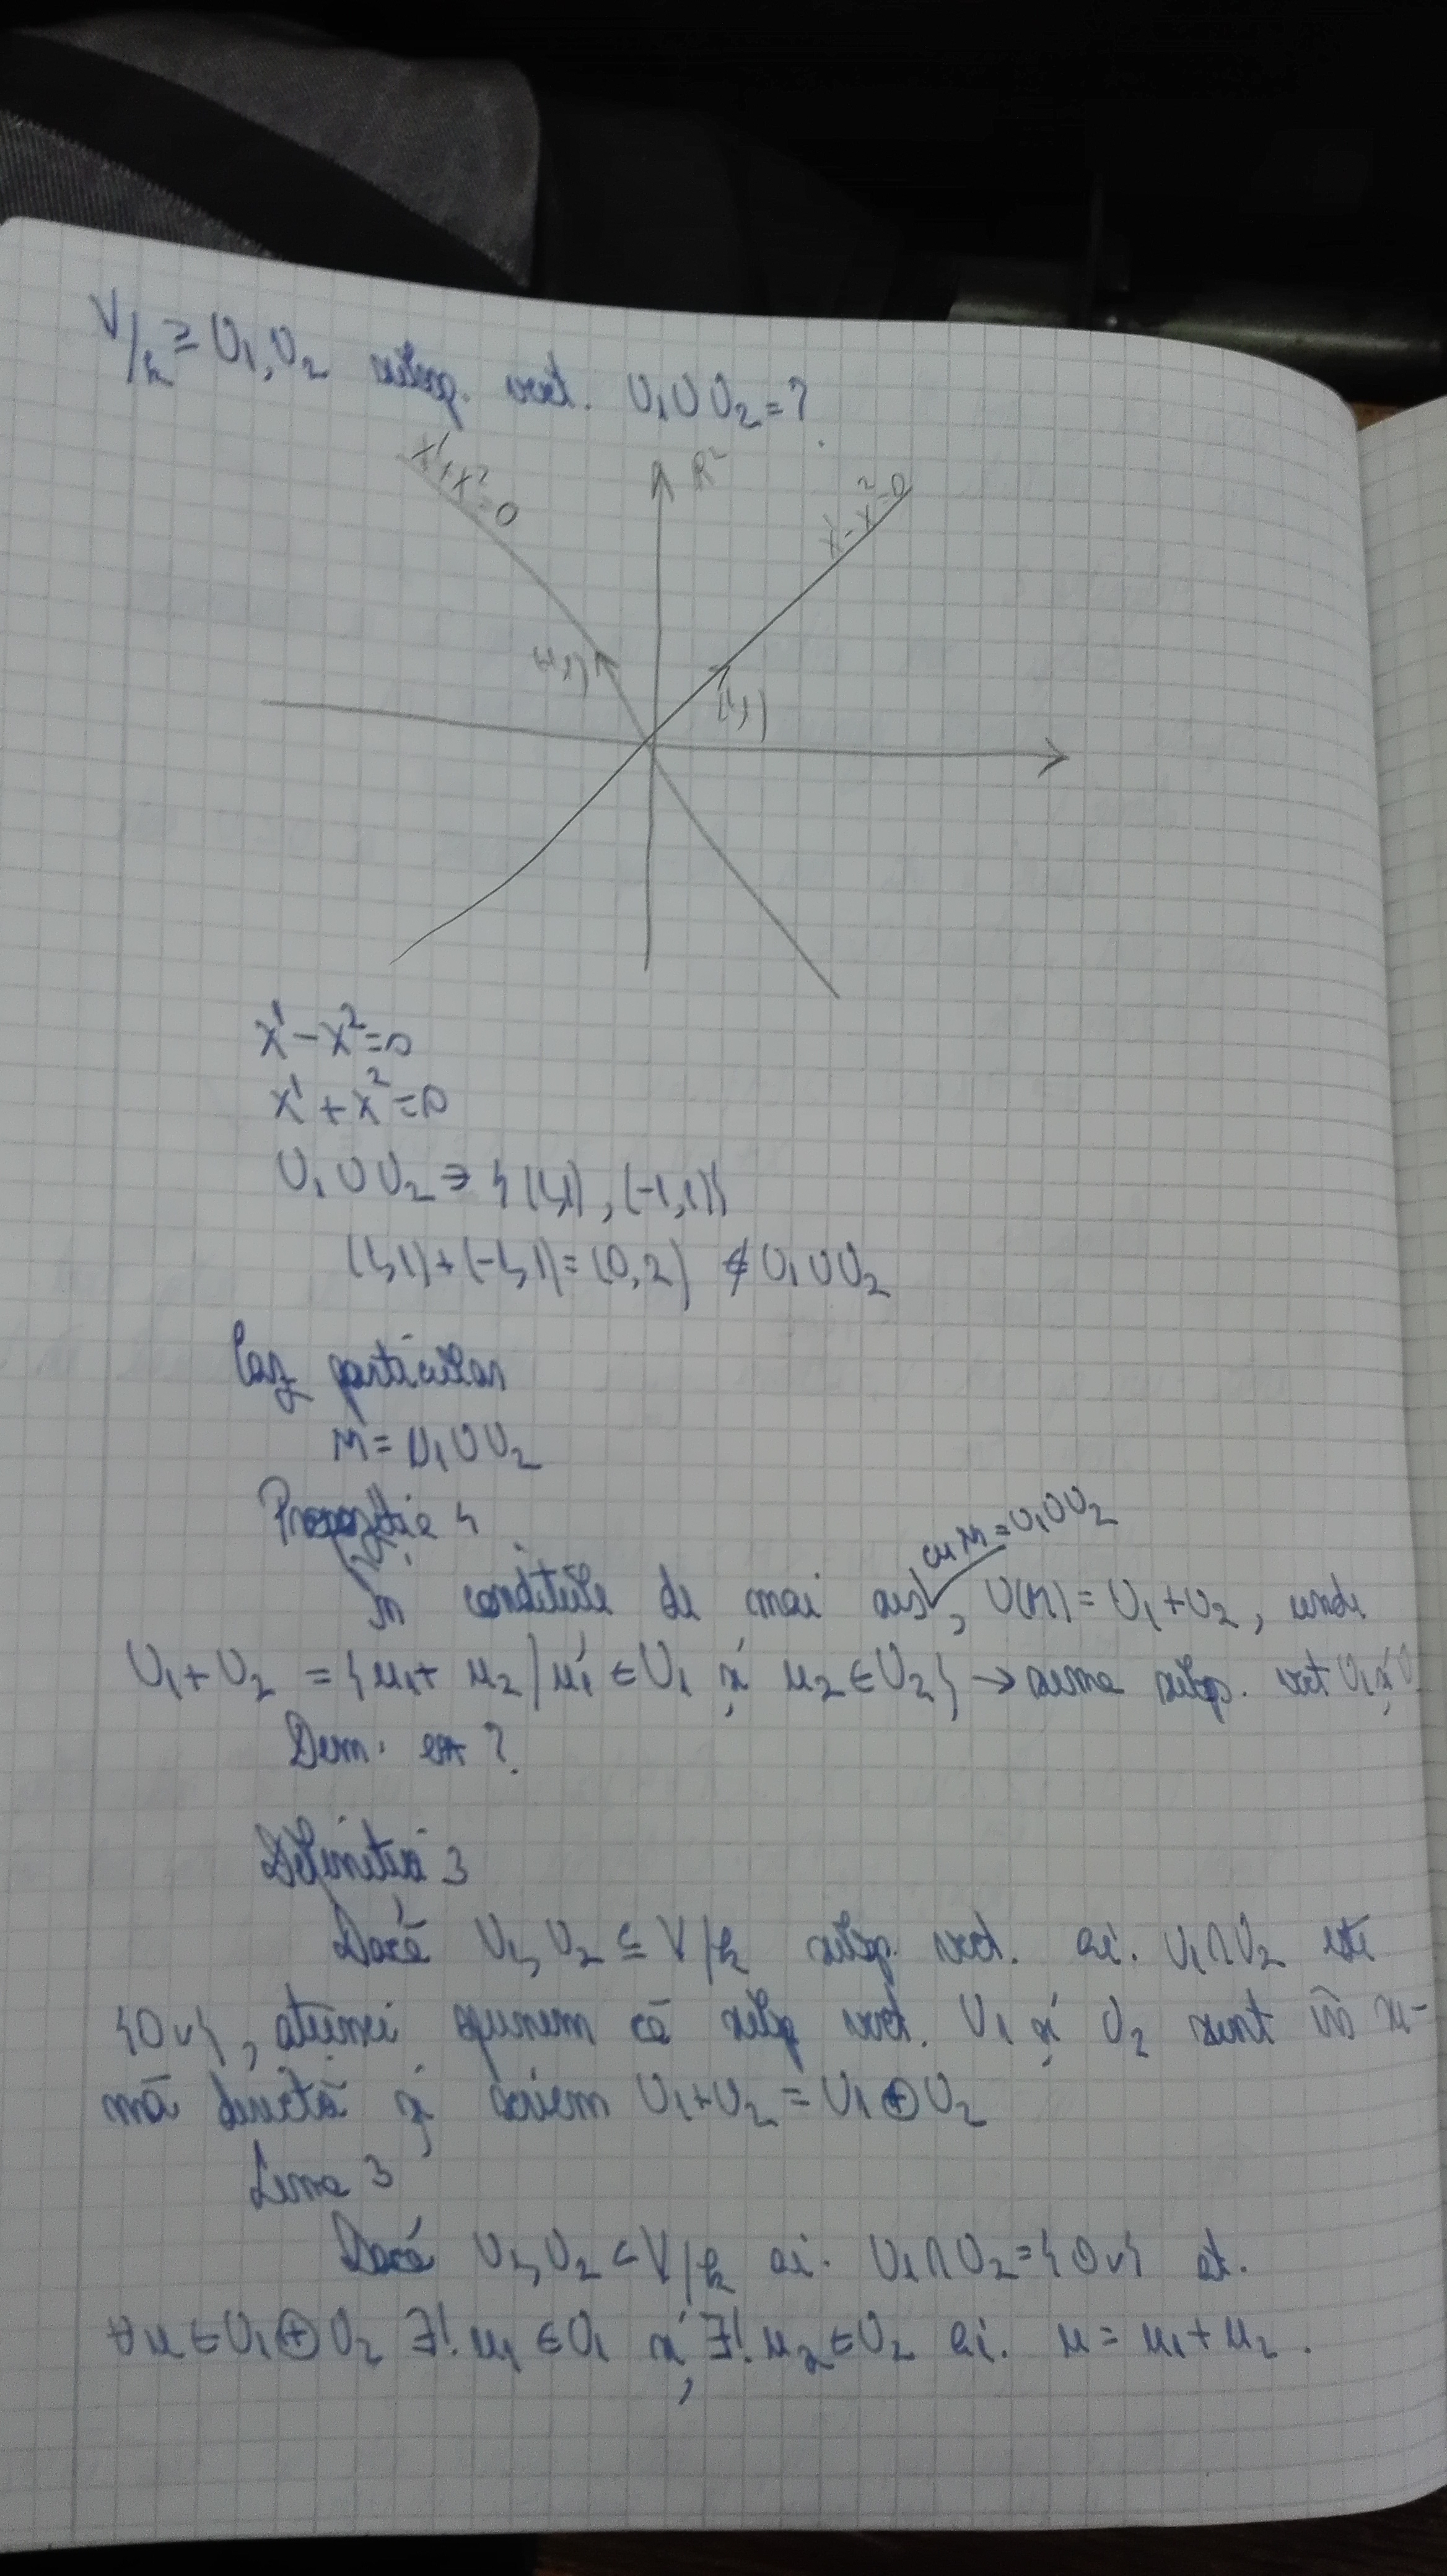 V/k ⊇ U₁, U₂ subsp. vect. U₁∪U₂=?
x¹+x²=0
R²
x¹-x²=0
(-1,1)
(1,1)
x¹-x²=0
x¹+x²=0
U₁∪U₂ ∋ {(1,1), (-1,1)}
(1,1)+(-1,1)=(0,2) ∉ U₁∪U₂
Caz particular
M=U₁∪U₂
Propoziție 4
cu M=U₁∪U₂
În condițiile de mai sus, U(M)=U₁+U₂, unde
U₁+U₂ = {u₁+u₂/u₁∈U₁ și u₂∈U₂} → suma subsp. vect U₁ și U
Dem: ?
Definiția 3
Dacă U₁, U₂ ⊆ V/k subsp. vect. aî. U₁∩U₂ este
{0v}, atunci spunem că subsp vect. U₁ și U₂ sunt în su-
mă directă și scriem U₁+U₂=U₁⊕U₂
Lema 3
Dacă U₁, U₂ ⊂ V/k aî. U₁∩U₂={0v} at.
∀u∈U₁⊕U₂ ∃! u₁∈U₁ și ∃! u₂∈U₂ aî. u=u₁+u₂.